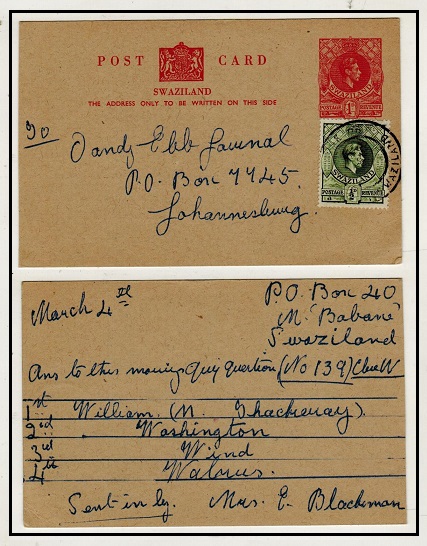 POST CARD
SWAZILAND
THE ADDRESS ONLY TO BE WRITTEN ON THIS SIDE
SWAZILAND
POSTAGE REVENUE
1d
To
Dandy Ebb Journal
P.O. Box 7745.
Johannesburg.
SWAZILAND
POSTAGE REVENUE
½d
ZILAND
March 4
P.O. Box 40
M'Babane
Swaziland
Ans to this morning Quiz question (No 139) Clue W
1st William. (M. Thackeray).
2nd Washington
3rd Wind
4th Walrus.
Sent in by. Mrs. E. Blackman